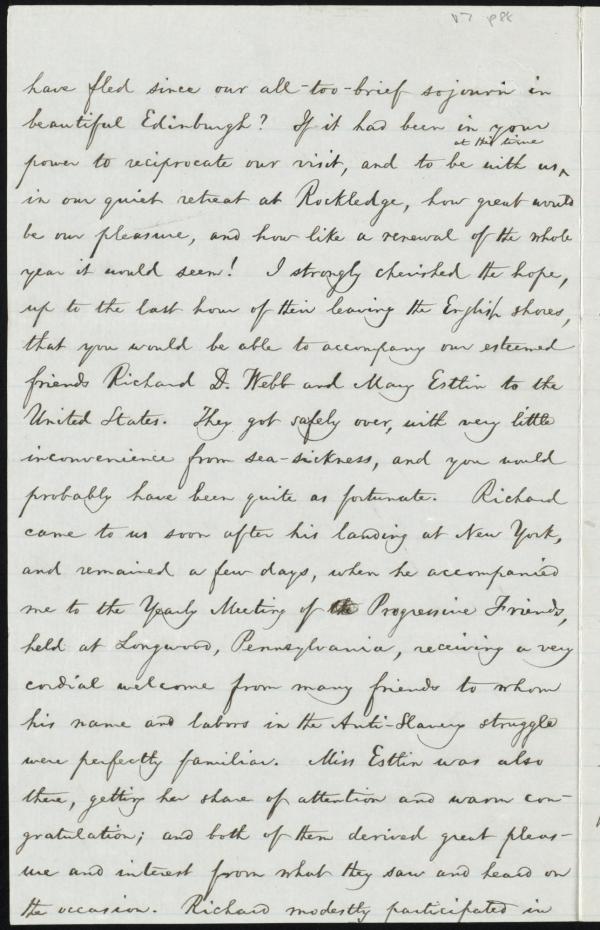 v7 p88
have fled since our all-too-brief sojourn in
beautiful Edinburgh? If it had been in your
at this time
power to reciprocate our visit, and to be with us,^
in our quiet retreat at Rockledge, how great would
be our pleasure, and how like a renewal of the whole
year it would seem! I strongly cherished the hope,
up to the last hour of their leaving the English shores,
that you would be able to accompany our esteemed
friends Richard D. Webb and Mary Estlin to the
United States. They got safely over, with very little
inconvenience from sea-sickness, and you would
probably have been quite as fortunate. Richard
came to us soon after his landing at New York,
and remained a few days, when he accompanied
me to the Yearly Meeting of the Progressive Friends,
held at Longwood, Pennsylvania, receiving a very
cordial welcome from many friends to whom
his name and labors in the Anti-Slavery struggle
were perfectly familiar. Miss Estlin was also
there, getting her share of attention and warm con-
gratulation; and both of them derived great pleas-
ure and interest from what they saw and heard on
the occasion. Richard modestly participated in